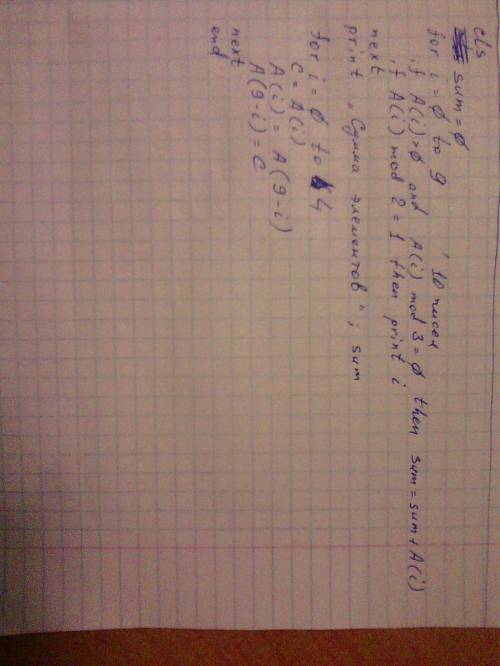 cls
sum = 0
for i = 0 to 9 ' 10 чисел
if A(i)>0 and A(i) mod 3 = 0 then sum = sum + A(i)
if A(i) mod 2 = 1 then print i
next
print „Сумма элементов" ; sum
for i = 0 to 4
C = A(i)
A(i) = A(9-i)
A(9-i) = C
next
end